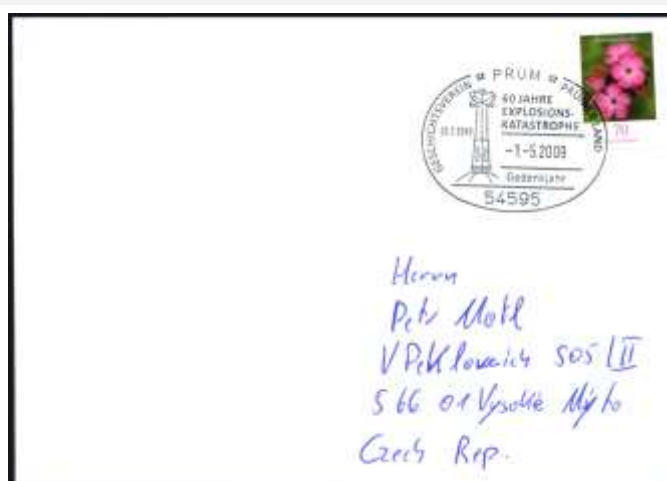 PRÜM
GESCHICHTSVEREIN PRÜMER LAND
60 JAHRE
EXPLOSIONS-
KATASTROPHE
-1.-5.2009
Gedenkjahr
54595
70
Herrn
Petr Motl
505/II
566 01 Vysoké Mýto
Czech Rep.